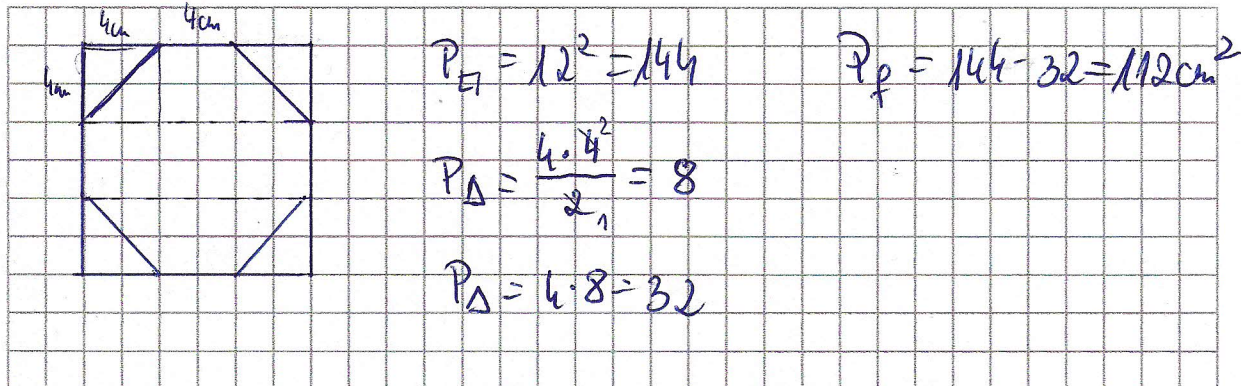 4cm 4cm
4cm
P□ = 12² = 144
P△ = (4·4²)/(2₁) = 8
P△ = 4·8 = 32
Pf = 144 - 32 = 112 cm²